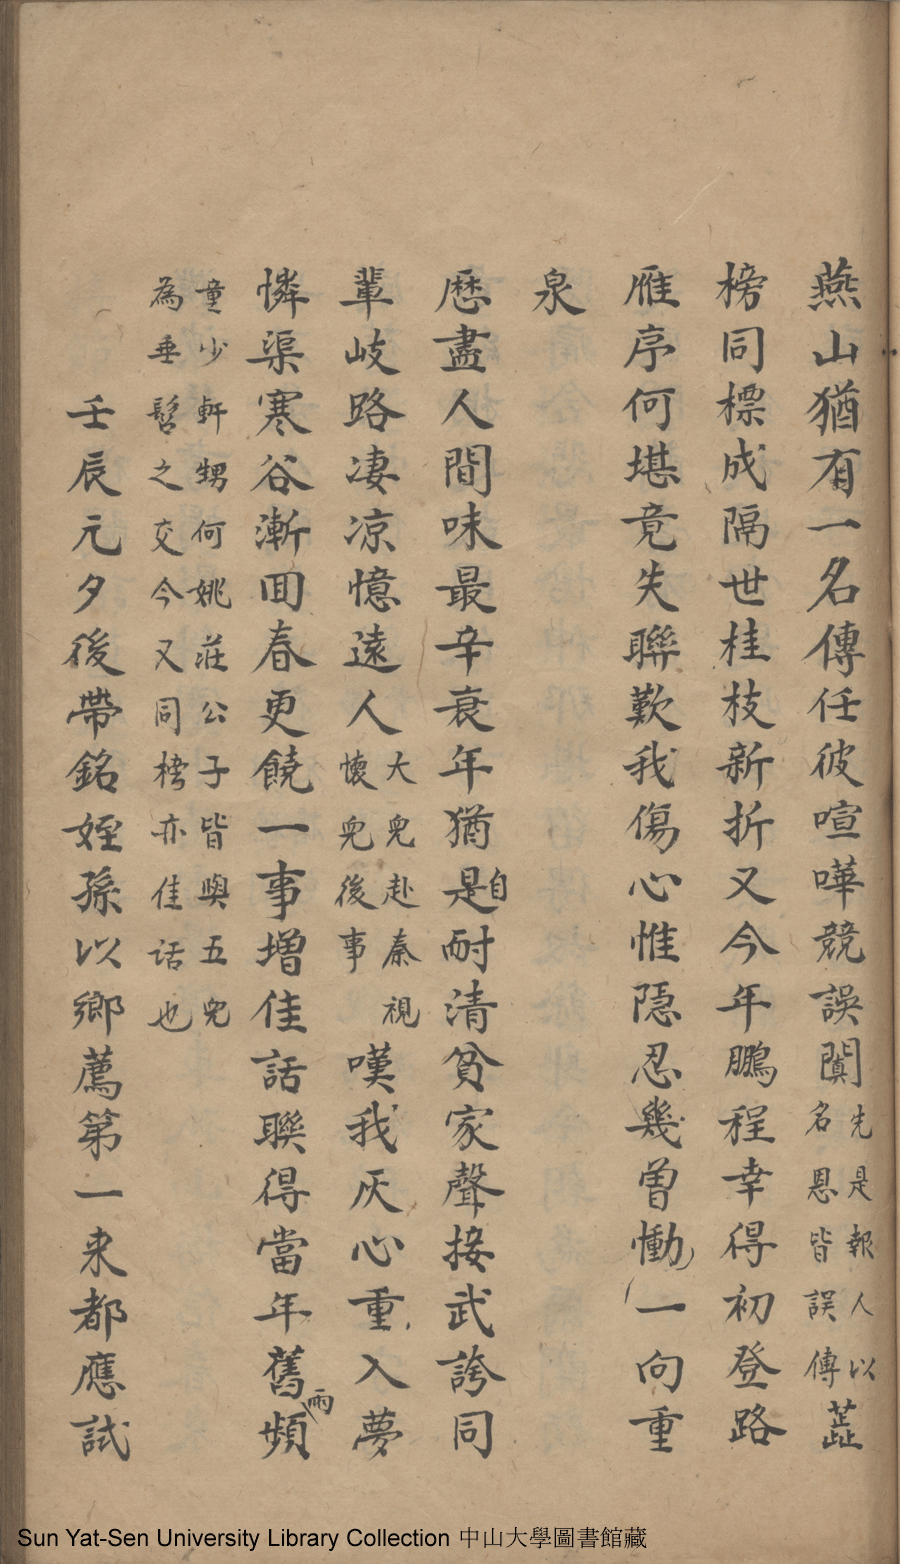 燕山猶有一名傳任彼喧嘩競誤闐先是報人以名恩皆誤傳蕋
榜同標成隔世桂枝新折又今年鵬程幸得初登路
雁序何堪竟失聯歎我傷心惟隐忍幾曾慟一向重
泉
厯盡人間味最辛衰年猶是自耐清貧家聲接武誇同
輩岐路凄凉憶遠人大兒赴秦視懷兒後事嘆我灰心重入夢
憐渠寒谷漸囬春更饒一事增佳話聯得當年舊雨頻
童少軒甥何姚莊公子皆與五兒
為垂髫之交今又同榜亦佳話也
壬辰元夕後帶銘姪孫以鄉薦第一来都應試
Sun Yat-Sen University Library Collection 中山大學圖書館藏